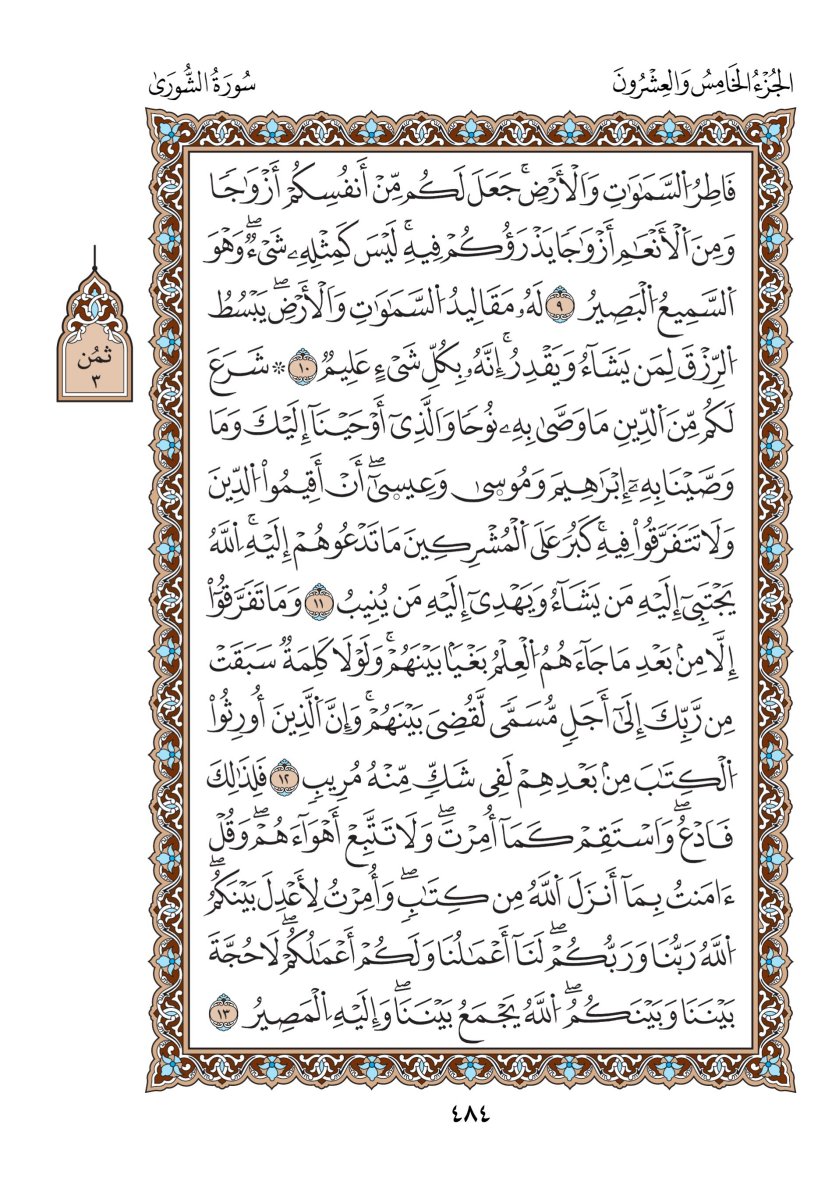 الجُزْءُ الخَامِسُ وَالعِشْرُونَ
سُورَةُ الشُّورَىٰ
فَاطِرُ اُ۬لسَّمَٰوَٰتِ وَالْأَرْضِۖ جَعَلَ لَكُم مِّنْ أَنفُسِكُمْ أَزْوَٰجاٗ
وَمِنَ اَ۬لْأَنْعَٰمِ أَزْوَٰجاٗ يَذْرَؤُكُمْ فِيهِۖ لَيْسَ كَمِثْلِهِۦ شَےْءٞۖ وَهُوَ
اَ۬لسَّمِيعُ اُ۬لْبَصِيرُ ٩ لَهُۥ مَقَالِيدُ اُ۬لسَّمَٰوَٰتِ وَالْأَرْضِۖ يَبْسُطُ
اُ۬لرِّزْقَ لِمَن يَشَآءُ وَيَقْدِرُۖ إِنَّهُۥ بِكُلِّ شَےْءٍ عَلِيمٞ ١٠ ۞ شَرَعَ
لَكُم مِّنَ اَ۬لدِّينِ مَا وَصَّىٰ بِهِۦ نُوحاٗ وَالَّذِےٓ أَوْحَيْنَآ إِلَيْكَ وَمَا
وَصَّيْنَا بِهِۦٓ إِبْرَٰهِيمَ وَمُوسۭىٰ وَعِيسۭىٰٓۖ أَنْ أَقِيمُواْ اُ۬لدِّينَ
وَلَا تَتَفَرَّقُواْ فِيهِۖ كَبُرَ عَلَى اَ۬لْمُشْرِكِينَ مَا تَدْعُوهُمْ إِلَيْهِۖ اِ۬للَّهُ
يَجْتَبِےٓ إِلَيْهِ مَن يَشَآءُ وَيَهْدِےٓ إِلَيْهِ مَن يُنِيبُ ١١ وَمَا تَفَرَّقُوٓاْ
إِلَّا مِنۢ بَعْدِ مَا جَآءَهُمُ اُ۬لْعِلْمُ بَغْياَۢ بَيْنَهُمْۖ وَلَوْلَا كَلِمَةٞ سَبَقَتْ
مِن رَّبِّكَ إِلَىٰٓ أَجَلٖ مُّسَمّىٗ لَّقُضِيَ بَيْنَهُمْۖ وَإِنَّ اَ۬لَّذِينَ أُورِثُواْ
اُ۬لْكِتَٰبَ مِنۢ بَعْدِهِمْ لَفِے شَكّٖ مِّنْهُ مُرِيبٖ ١٢ فَلِذَٰلِكَ
فَادْعُۖ وَاسْتَقِمْ كَمَآ أُمِرْتَۖ وَلَا تَتَّبِعْ أَهْوَآءَهُمْۖ وَقُلْ
ءَامَنتُ بِمَآ أَنزَلَ اَ۬للَّهُ مِن كِتَٰبٖۖ وَأُمِرْتُ لِأَعْدِلَ بَيْنَكُمُۖ
اُ۬للَّهُ رَبُّنَا وَرَبُّكُمْۖ لَنَآ أَعْمَٰلُنَا وَلَكُمْ أَعْمَٰلُكُمْۖ لَا حُجَّةَ
بَيْنَنَا وَبَيْنَكُمُۖ اُ۬للَّهُ يَجْمَعُ بَيْنَنَاۖ وَإِلَيْهِ اِ۬لْمَصِيرُ ١٣
ثمُن
٣
٤٨٤